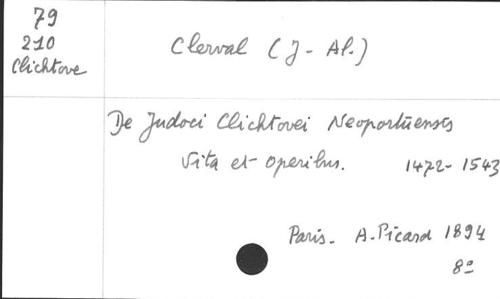 79
210
Clichtove
Clerval (J- Al.)
De Judoci Clichtovei Neoportuensis
Vita et operibus. 1472-1543
Paris. A. Picard 1894
8º